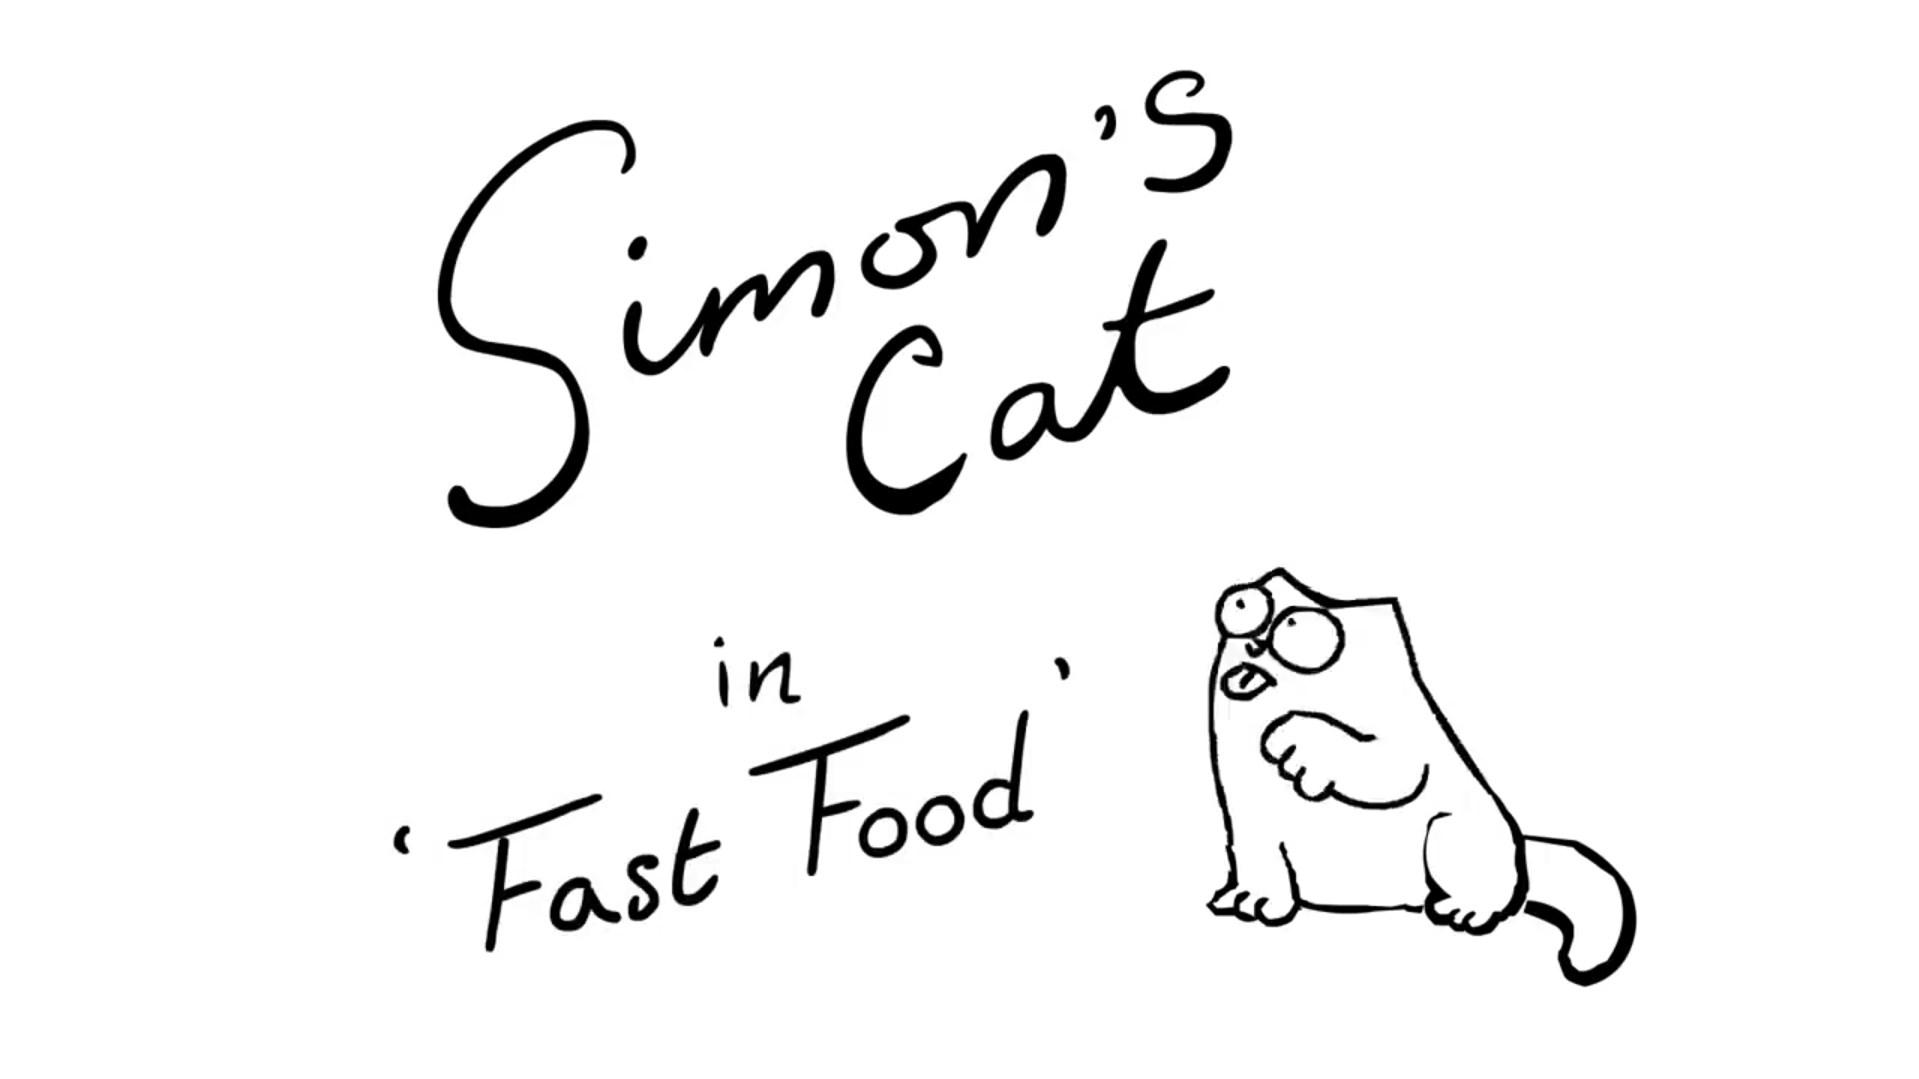 Simon's
Cat
in
'Fast Food'